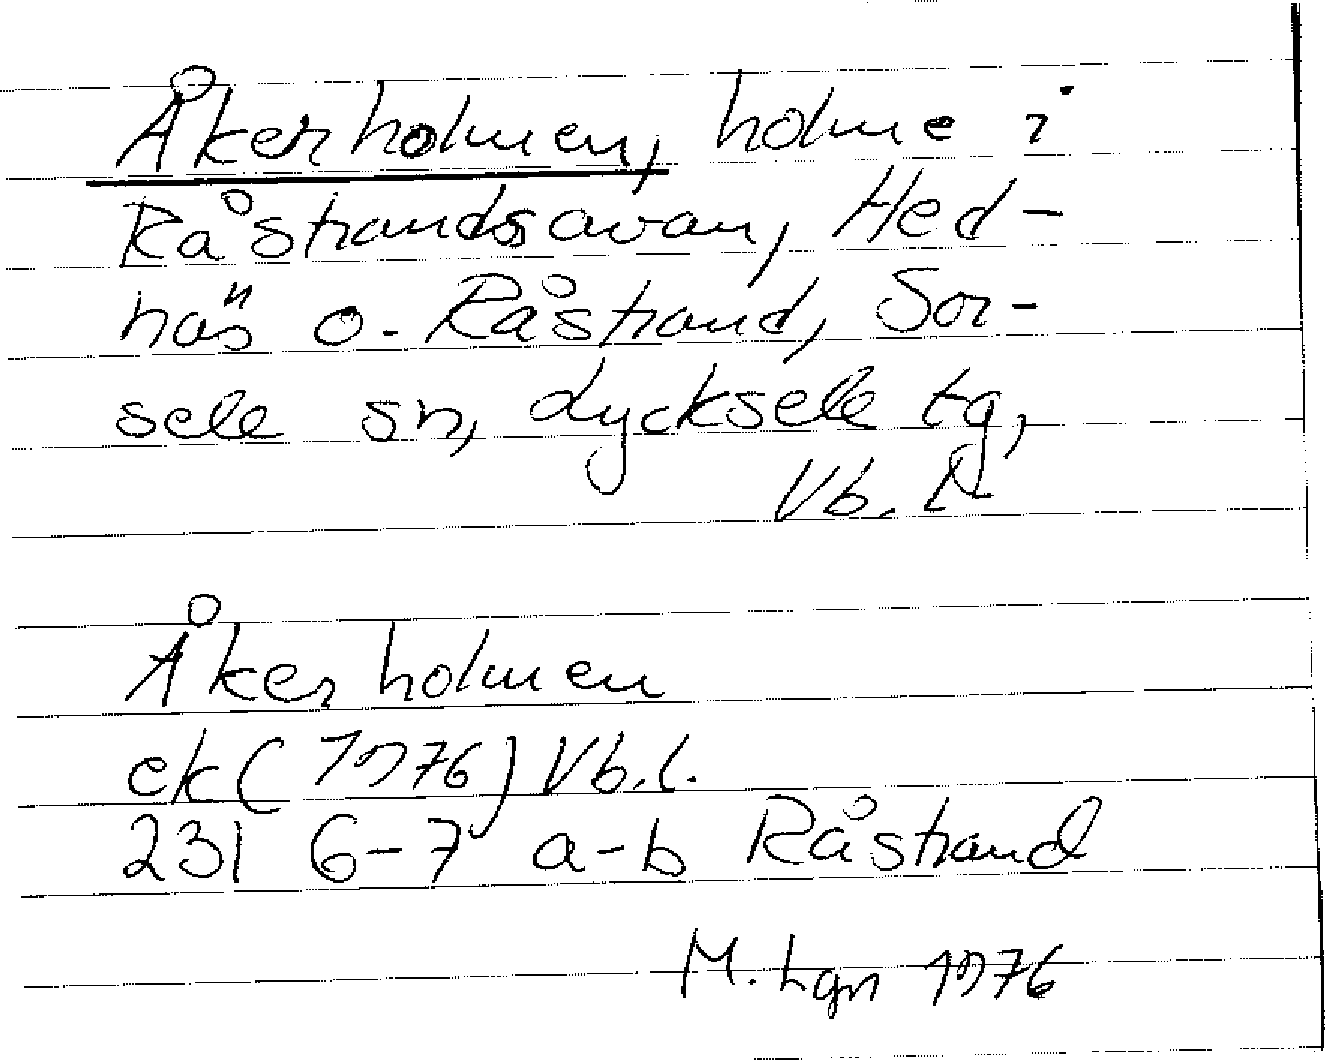 Åkerholmen, holme i
Råstrandsavan, Hed-
näs o. Råstrand, Sor-
sele sn, Lycksele tg,
Vb. l.
Åkerholmen
ek (1976) Vb.l.
231 6-7 a-b Råstrand
M. Lgn 1976